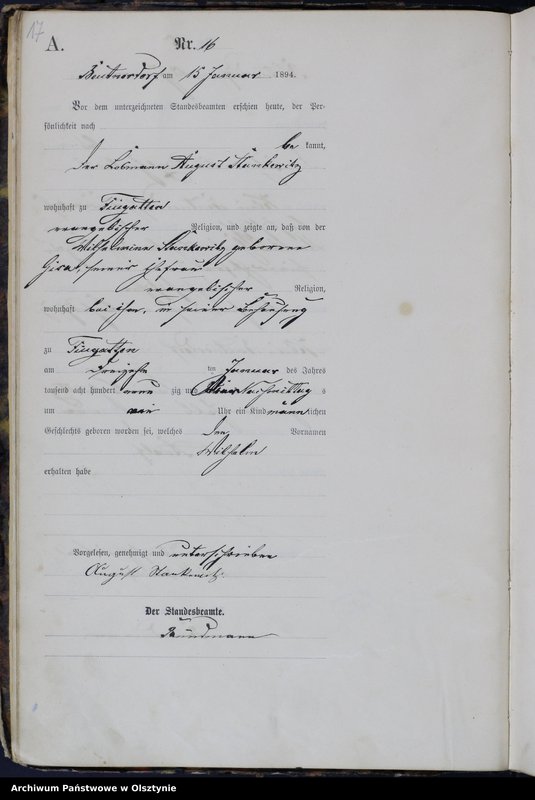 17
A. Nr. 16
Beutnerdorf am 15 Januar 1894.
Vor dem unterzeichneten Standesbeamten erschien heute, der Per-
sönlichkeit nach
be kannt,
der Losmann August Stankewitz
wohnhaft zu Fingatten
evangelischer Religion, und zeigte an, daß von der
Wilhelmine Stankewitz geborene
seiner Ehefrau
evangelischer Religion,
wohnhaft bei ihm, in seiner Behausung
zu Fingatten
am dreizehn ten Januar des Jahres
tausend acht hundert neun zig und vier Nachmittag s
um Uhr ein Kind männ lichen
Geschlechts geboren worden sei, welches den Vornamen
Wilhelm
erhalten habe
Vorgelesen, genehmigt und unterschrieben
August Stankewitz
Der Standesbeamte.
Archiwum Państwowe w Olsztynie